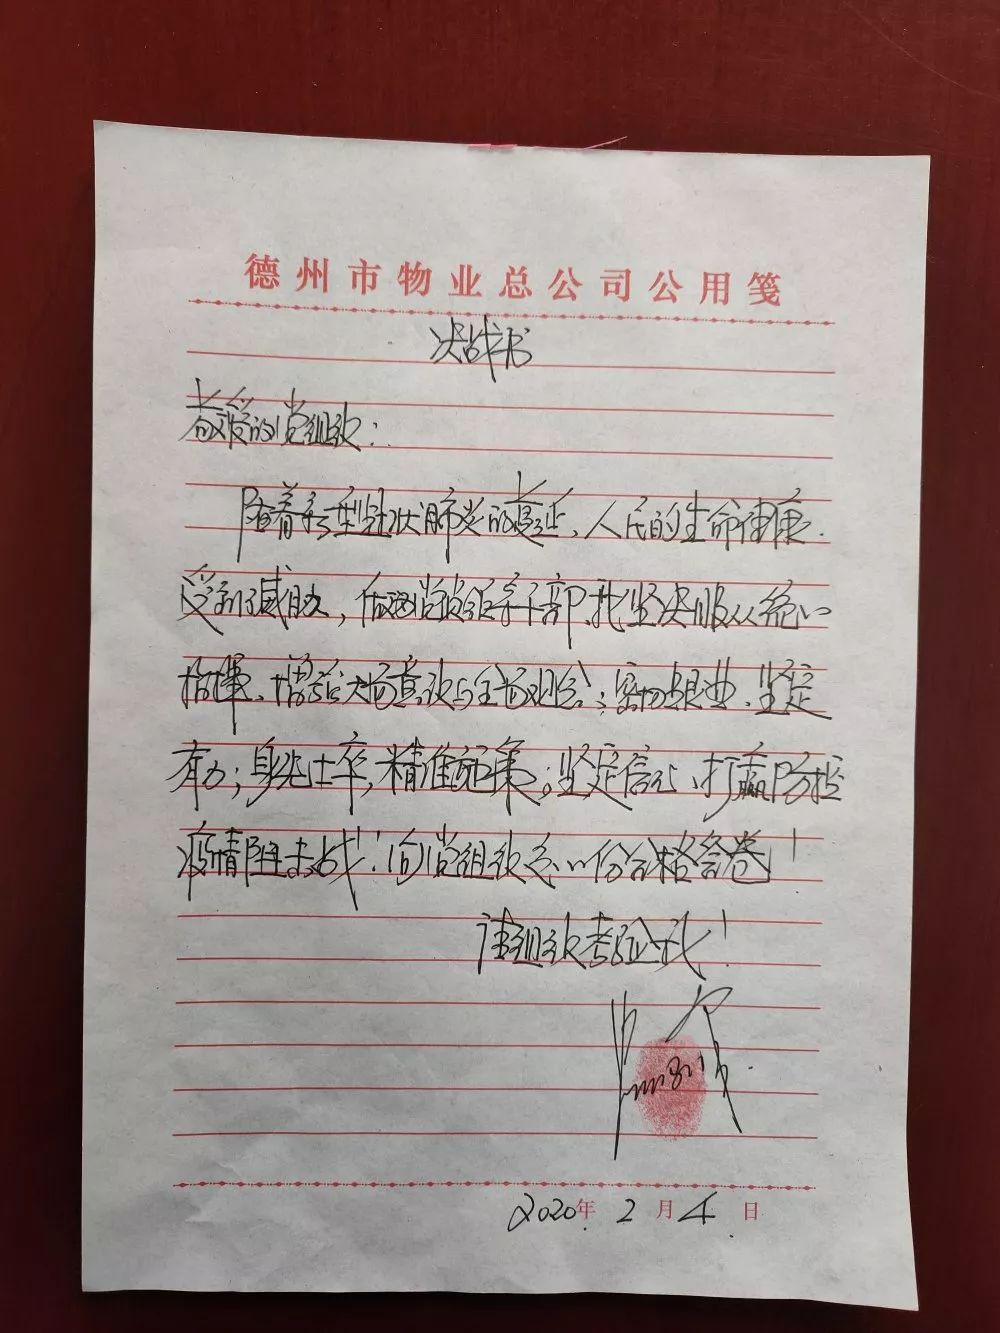 德州市物业总公司公用笺
决战书
敬爱的党组织：
随着新型冠状肺炎的蔓延、人民的生命健康
受到了威胁，做为党员领导干部、我坚决服从统一
指挥、增强大局意识与全局观念；坚定
有力；身先士卒，精准施策；坚定信心、打赢防控
疫情阻击战！向党组织交一份合格答卷！
请组织考验我！
2020年2月4日